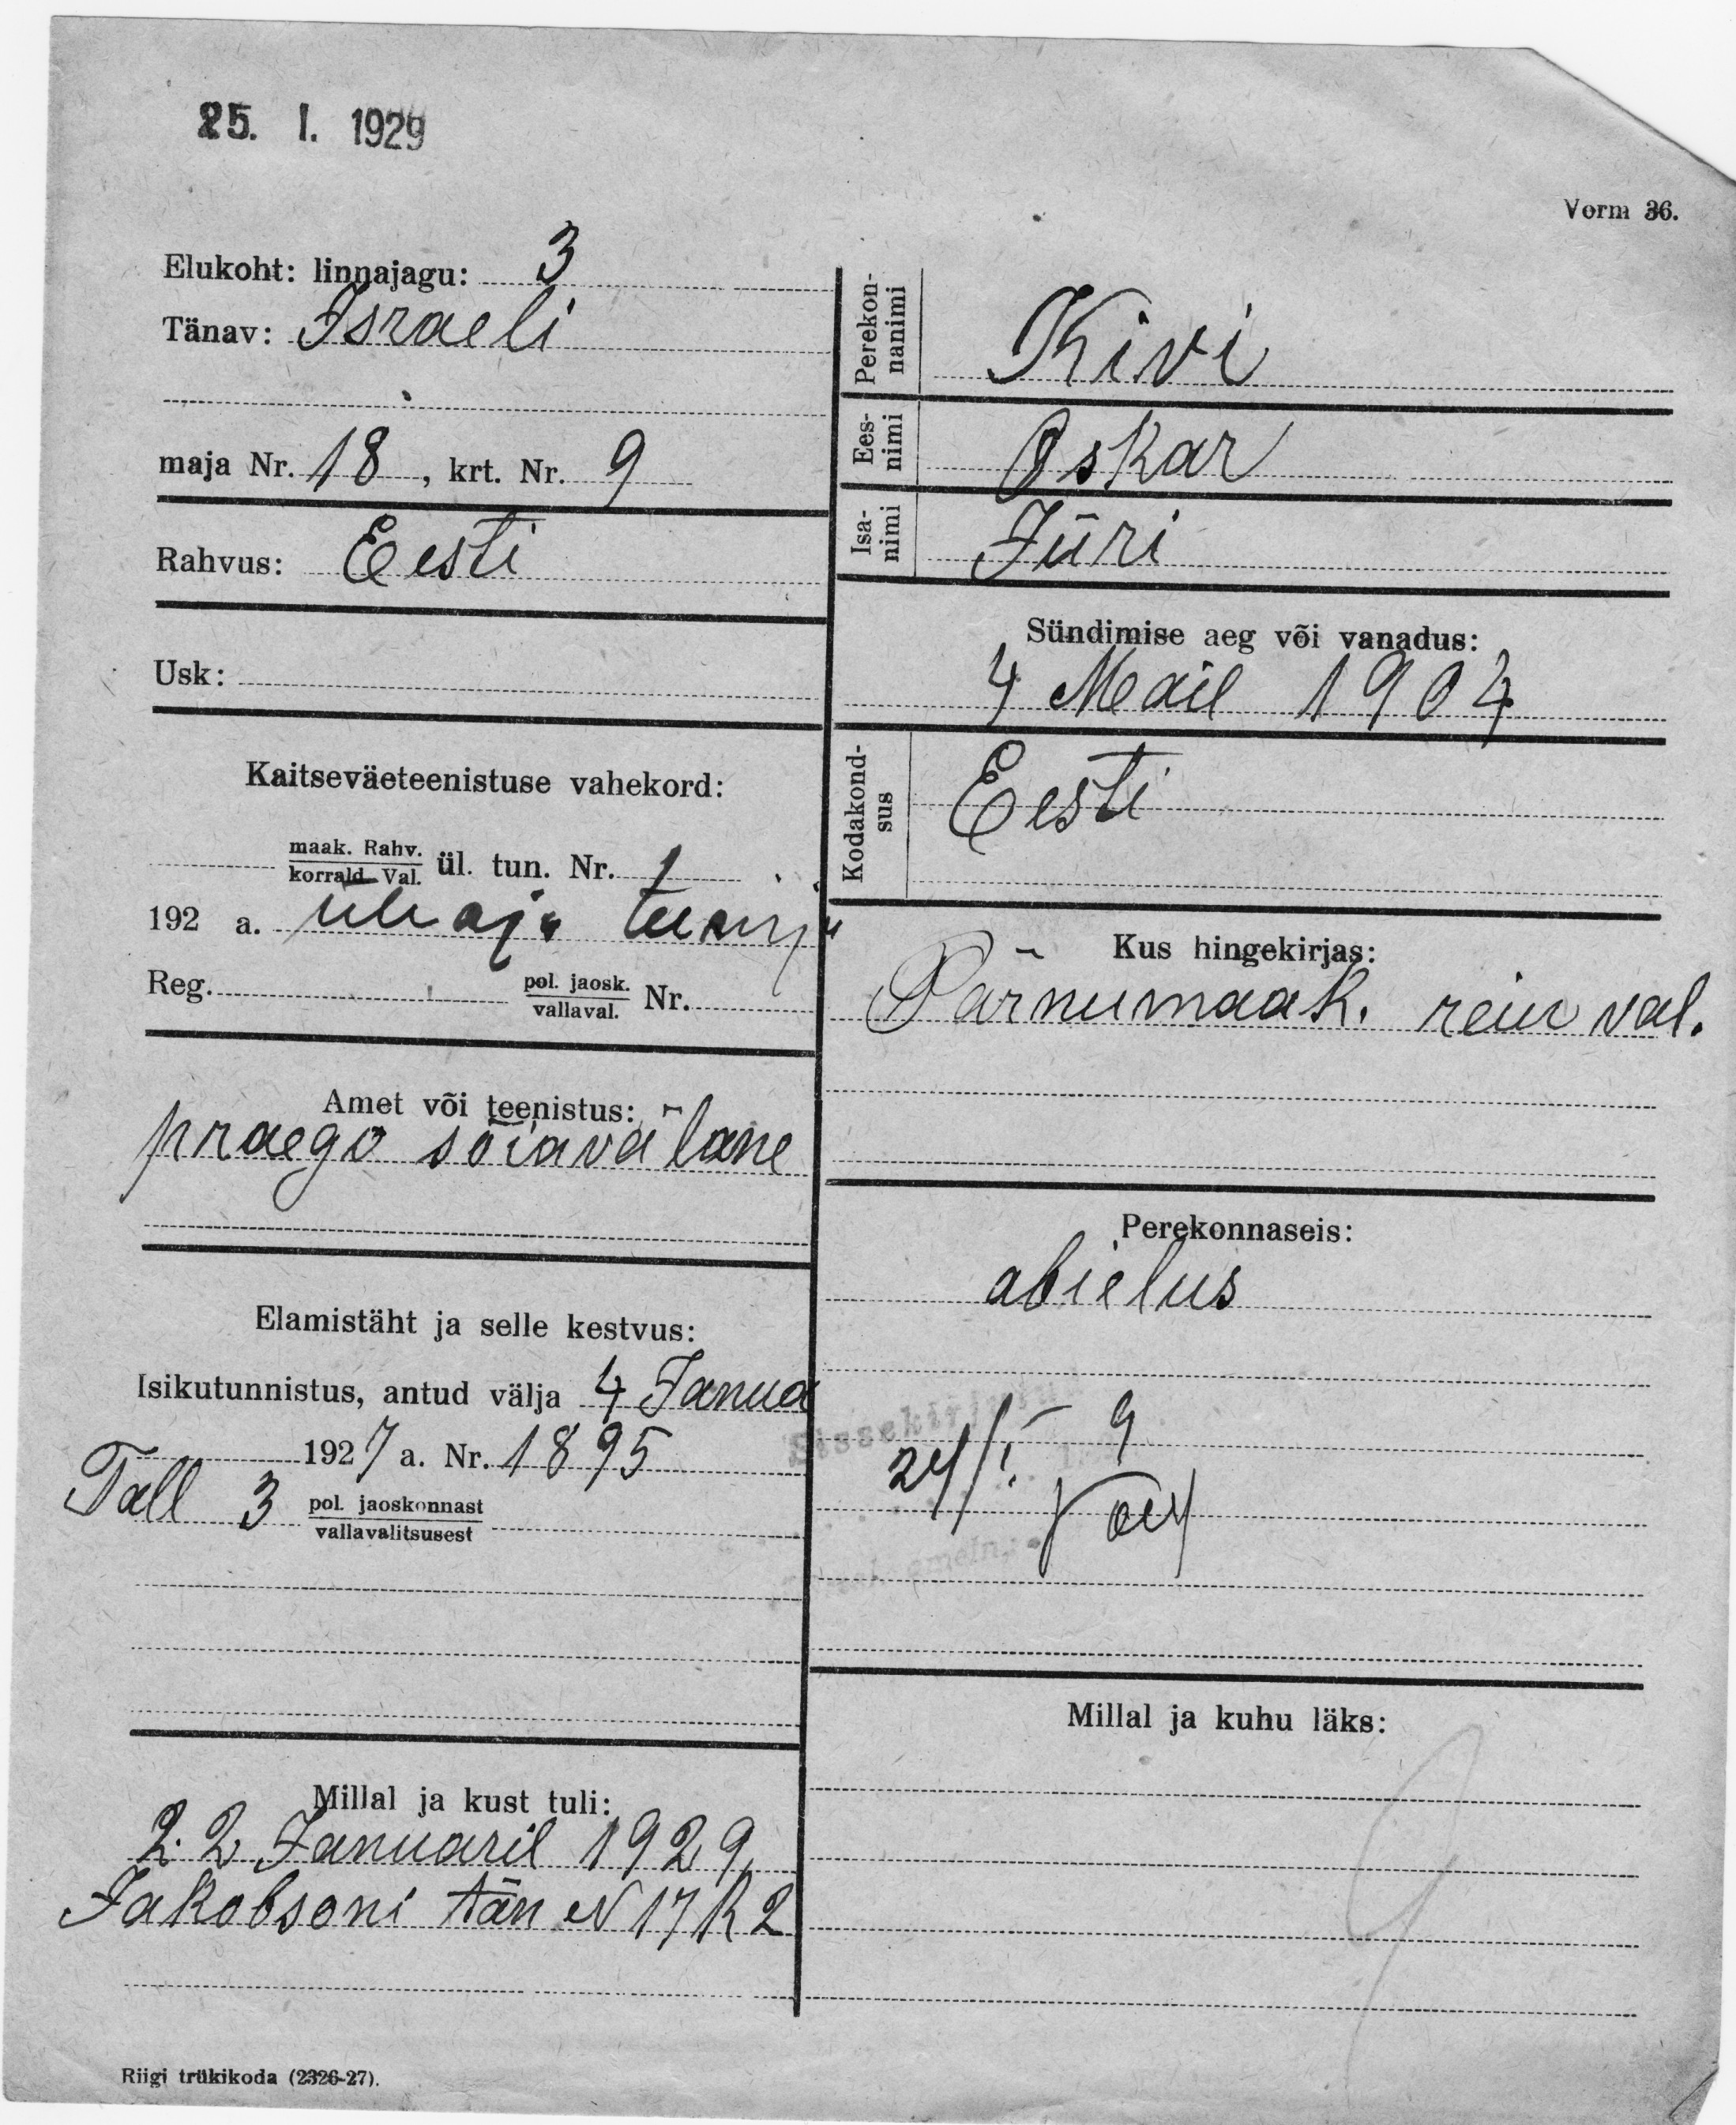 25. I. 1929
Vorm 36.
Elukoht: linnajagu: 3
Tänav: Israeli
maja Nr. 18, krt. Nr. 9
Rahvus: Eesti
Usk:
Kaitseväeteenistuse vahekord:
maak. Rahv.
korrald. Val. ül. tun. Nr. 1
192 a.
Reg. pol. jaosk.
vallaval. Nr.
Amet või teenistus:
praego sõiaväelane
Elamistäht ja selle kestvus:
Isikutunnistus, antud välja 4 Janua
1927 a. Nr. 1895
Tall 3 pol. jaoskonnast
vallavalitsusest
Millal ja kust tuli:
22 Januaril 1929,
Jakobsoni tän N 17 K 2
Riigi trükikoda (2326-27).
Perekon-
nanimi Kivi
Ees-
nimi Oskar
Isa-
nimi Jüri
Sündimise aeg või vanadus:
4 Mail 1904
Kodakond-
sus Eesti
Kus hingekirjas:
Pärnumaak. reiu val.
Perekonnaseis:
abielus
24/I 9
Millal ja kuhu läks: